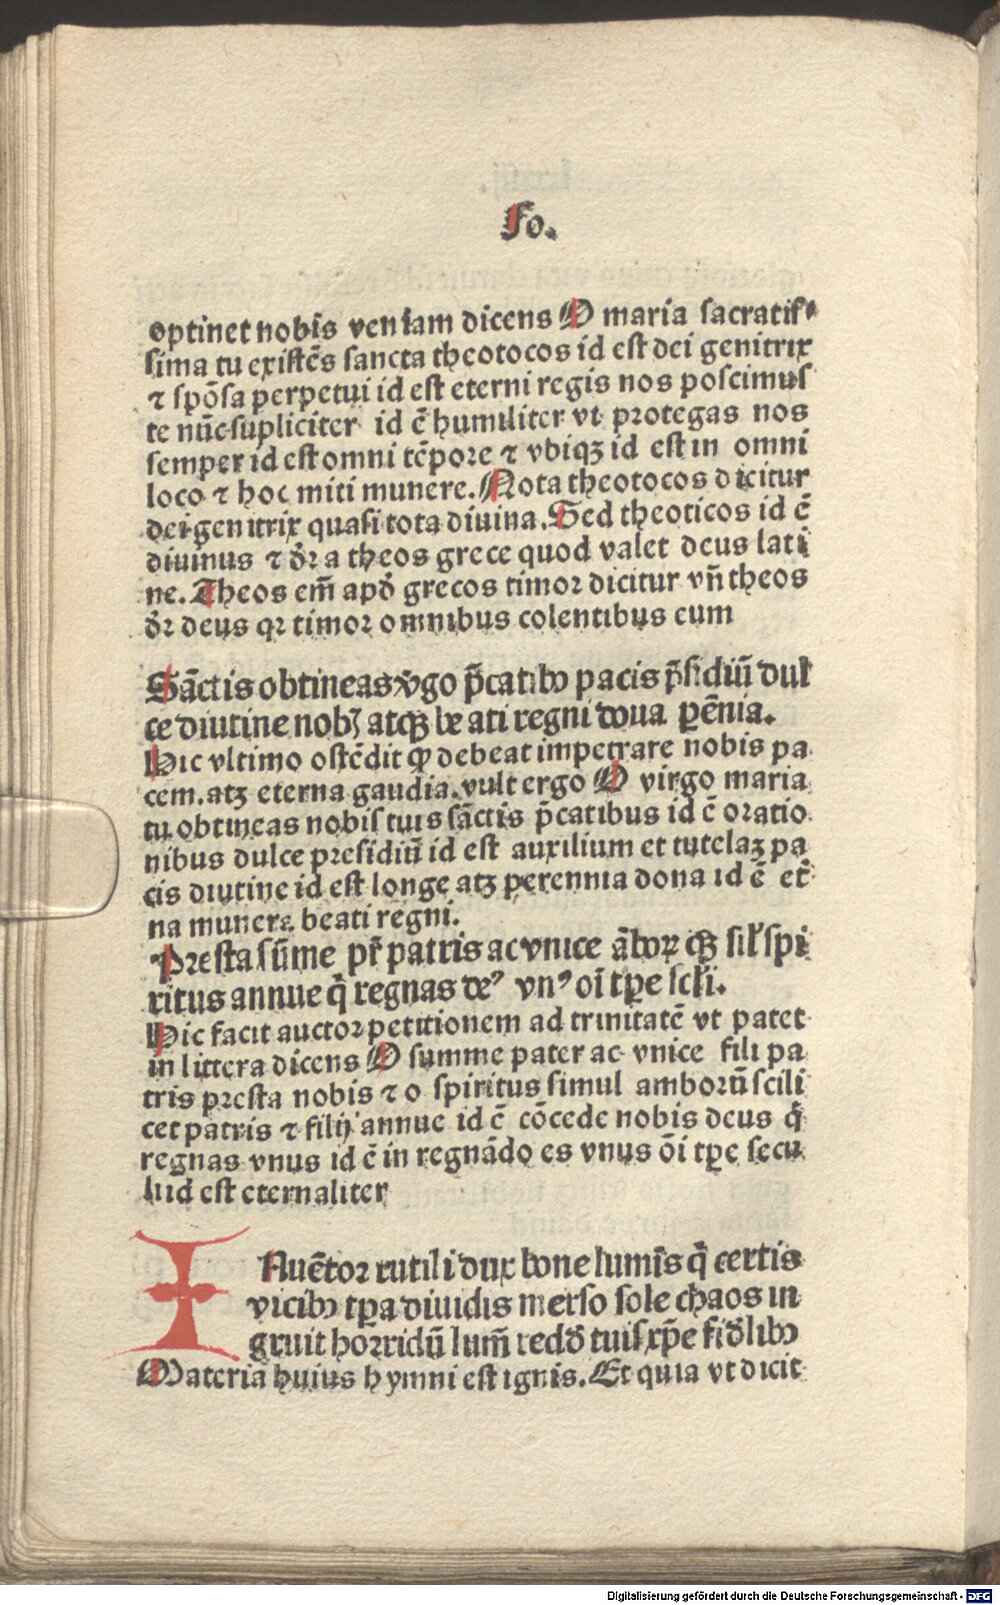 Fo.
optinet nobis veniam dicens O maria sacratis⸗
sima tu existēs sancta theotocos id est dei genitrix
⁊ spōsa perpetui id est eterni regis nos poscimus
te nūc supliciter id ē humiliter vt protegas nos
semper id est omni tēpore ⁊ vbiqꝫ id est in omni
loco ⁊ hoc miti munere. Nota theotocos dicitur
dei genitrix quasi tota diuina. Sed theoticos id ē
diuinus ⁊ dr̄ a theos grece quod valet deus lati
ne. Theos em̄ apd̓ grecos timor dicitur vn̄ theos
dr̄ deus qꝛ timor omnibus colentibus eum
Sāctis obtineas v̓go p̄catibꝰ pacis p̄sidiū dul
ce diutine nobꝫ atqꝫ beati regni dona ꝑēnia.
Hic vltimo ostēdit ꝙ debeat impetrare nobis pa
cem. atꝫ eterna gaudia. vult ergo O virgo maria
tu obtineas nobis tuis sāctis p̄catibus id ē oratio
nibus dulce presidiū id est auxilium et tutelaꝫ pa
cis diutine id est longe atꝫ perennia dona id ē et̓
na munera beati regni.
Presta sūme pr̄ patris ac vnice āboꝝ qꝫ sil̓ spi
ritus annue q̄ regnas deꝰ vnꝰ oī tꝑe scl̓i.
Hic facit auctor petitionem ad trinitatē vt patet
in littera dicens O summe pater ac vnice fili pa
tris presta nobis ⁊ o spiritus simul ambortū scili
cet patris ⁊ filij annue id ē cōcede nobis deus q̄
regnas vnus id ē in regnādo es vnus ōi tꝑe secu
li id est eternaliter
INuētor rutili dux bone lumīs q̄ certis
vicibꝰ tꝑa diuidis merso sole chaos in
gruit horridū lum̄ redd̓ tuis xp̄e fid̓libꝰ
Materia huius hymni est ignis. Et quia vt dicit
Digitalisierung gefördert durch die Deutsche Forschungsgemeinschaft - DFG